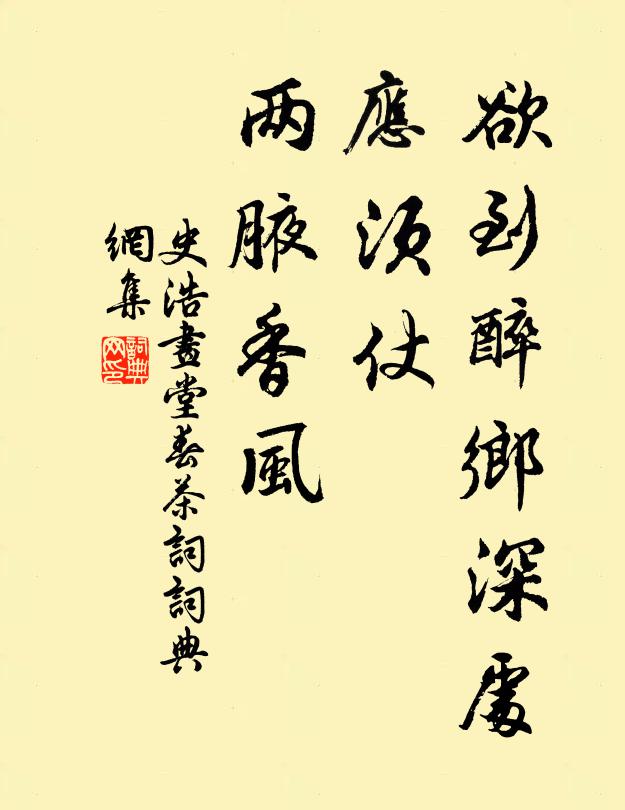 欲到醉鄉深處
應須仗
两腋香風
史浩畫堂春茶詞詞典
網集
詞典
网印